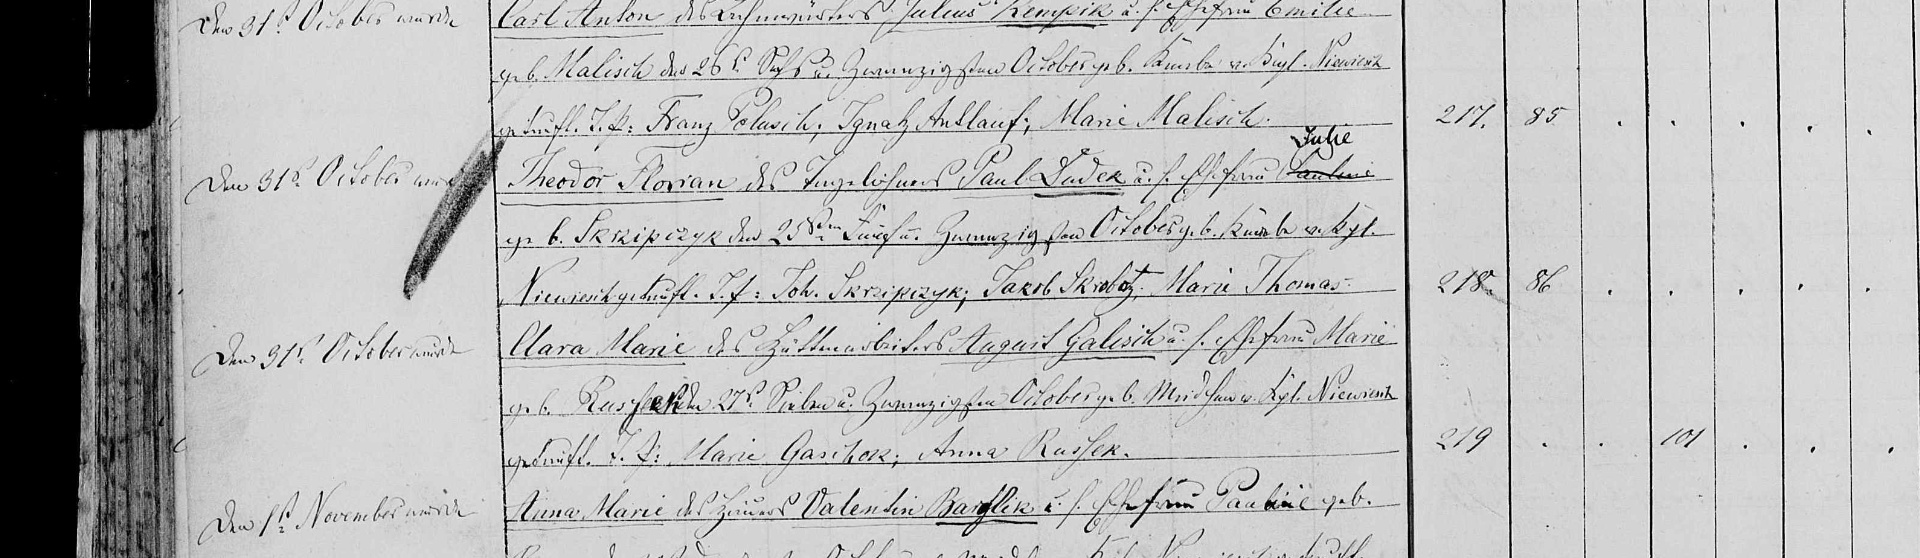 Den 31t October wurde Carl Anton des Lehnwärters Julius Kempik u. s. Ehefrau Emilie
geb. Malisch den 26t Sechs u. Zwanzigsten October geb. Knabe v. Kgl. Niewiesch
getauft. T. P: Franz Polasch; Ignatz Anklauf; Marie Malisch. 217. 85 . . . . .
Julie
Den 31t October wurde Theodor Florian des Tagelöhners Paul Dudek u. s. Ehefrau Pauline
geb. Skrzipczyk den 25ten Fünf u. Zwanzigsten October geb. Knabe v. Kgl.
Niewiesch getauft. T. P: Joh. Skrzipczyk; Jakob Skrobotz; Marie Thomas. 218. 86 . . . . .
Den 31t October wurde Clara Marie des Hüttenarbeiters August Galisch u. s. Ehefrau Marie
geb. Russek den 27t Sieben u. Zwanzigsten October geb. Mädchen v. Kgl. Niewiesch
getauft. T. P: Marie Gaschok; Anna Russek. 219 . . 101 . . .
Den 1t November wurde Anna Marie des Häuers Valentin u. s. Ehefrau Pauline geb.